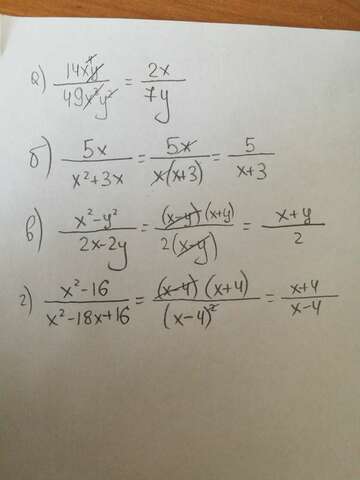 а) 14x⁴y / 49x²y² = 2x / 7y
б) 5x / x²+3x = 5x / x(x+3) = 5 / x+3
в) x²-y² / 2x-2y = (x-y)(x+y) / 2(x-y) = x+y / 2
г) x²-16 / x²-18x+16 = (x-4)(x+4) / (x-4)² = x+4 / x-4